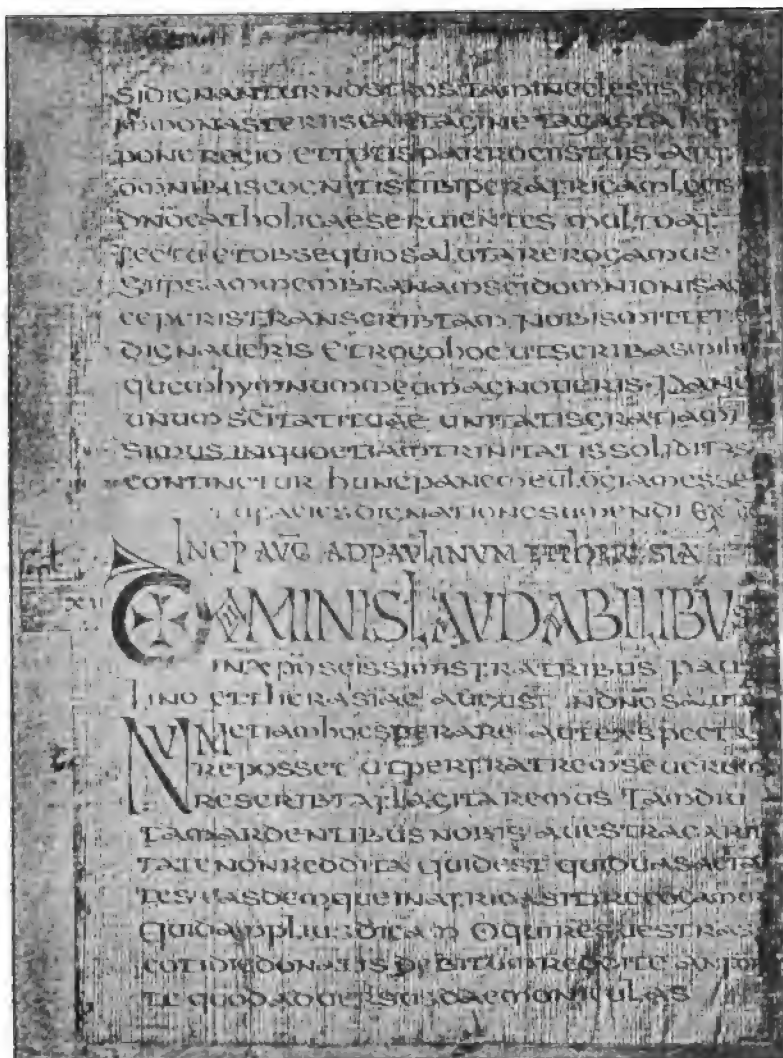 SIDIGNANTUR NOSTROS TAM IN ECLESIIS
MONASTERIIS CARTAGINIE TAGASTA HIP
PONE REGIO ET TOTIS PARROCIIS TUIS ATQ
OMNIBUS COGNITIS TIBI PER AFRICAM LOCIS
DNO CATHOLICAE SERUIENTES MULTO AF
FECTU ET OBSEQUIO SALUTARE ROGAMUS
SI IPSAM MEMBRANAM SCI DOMNIONIS AC
CEPERIS TRANSCRIBTAM NOBIS MITTERE
DIGNAUERIS ET ROGO HOC UT SCRIBAS MIHI
QUEM HYMNUM MEUM AGNOUERIS PANE
UNUM SCITATI TUAE UNITATIS GRATIA MI
SIMUS IN QUO ETIAM TRINITATIS SOLIDITAS
CONTINETUR HUNC PANEM EULOGIAM ESSE
TU FACIES DIGNATIONE SUMENDI EX
INCP AUG AD PAULINUM ET THERESIA
DOMINIS LAUDABILIBUS
IN XPO SCISSIMIS FRATRIBUS PAU
LINO ET THERASIAE AUGUST IN DNO
NUM ETIAM HOC SPERARE AUT EXSPECTA
RE POSSET UT PER FRATREM SEUERUM
RESCRIBTA FLAGITAREMUS TAMDIU
TAM ARDENTIBUS NOBIS A UESTRA CARI
TATE NON REDDITA QUID EST QUI DUAS AESTA
TES EASDEMQUE IN AFRICA SITIRE COGAMUR
QUID AMPLIUS DICAM O QUI RES UESTRAS
COTIDIE DONATIS DEBITUM REDDITE AN FOR
TE QUOD ADUERSUS DAEMONICOLAS